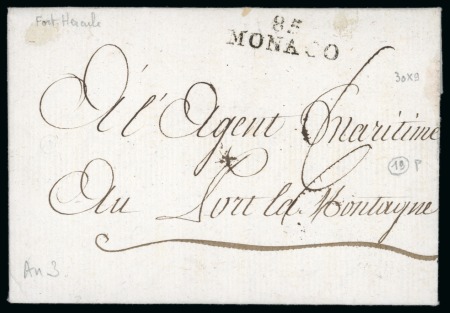 Fort Hercule
85
MONACO
30x9
A l'Agent Maritime
18 P
Au Port la Montagne
An 3.